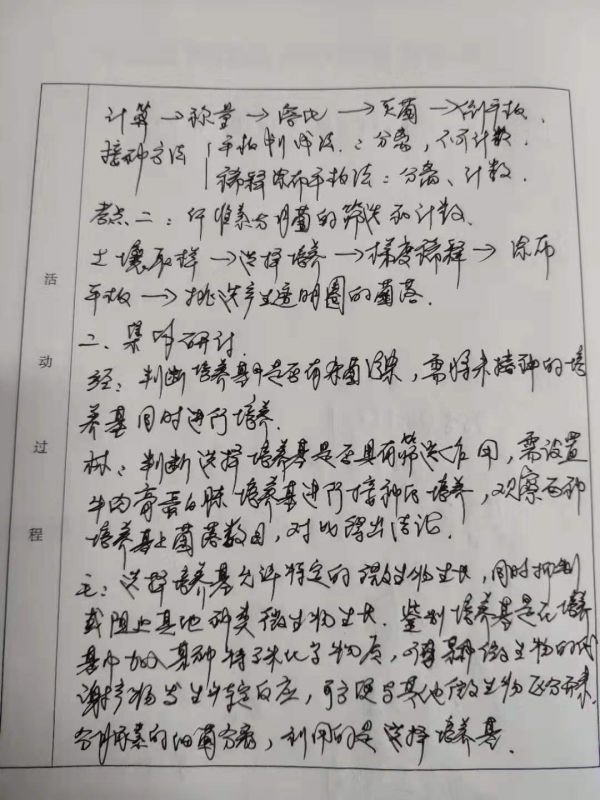 计算→称量→溶化→灭菌→倒平板.
接种方法 平板划线法：分离，不可计数.
稀释涂布平板法：分离、计数.
考点二：纤维素分解菌的筛选和计数.
土壤取样→选择培养→梯度稀释→涂布
平板→挑选产生透明圈的菌落.
二、集体研讨.
判断培养基中是否有杂菌污染，需将未接种的培
养基同时进行培养.
林：判断选择培养基是否具有筛选作用，需设置
牛肉膏蛋白胨培养基进行接种后培养，观察两种
培养基上菌落数目，对比得出结论.
王：选择培养基允许特定的微生物生长，同时抑制
或阻止其他种类微生物生长. 鉴别培养基是在培养
基中加入某种特殊化学物质，某种微生物的代
谢产物发生特定反应，可方便与其他微生物区分开来.
分解尿素的细菌分离，利用的是选择培养基.
活
动
过
程